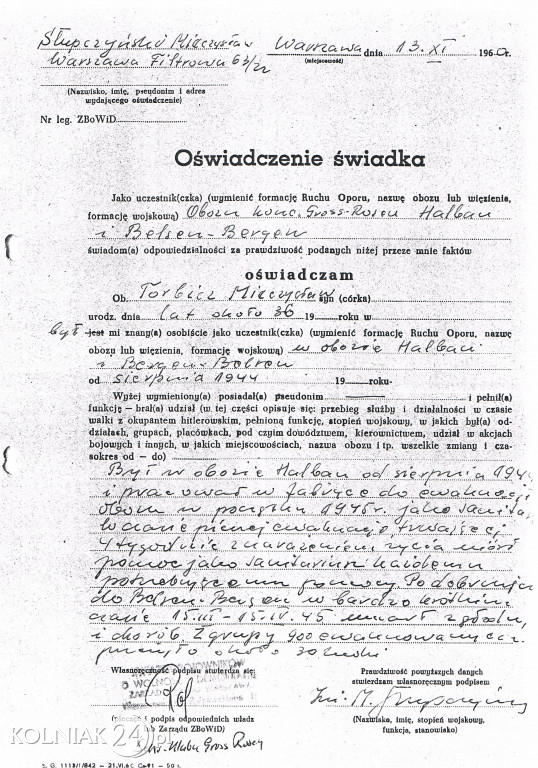 Słupczyński Mieczysław Warszawa dnia 13. XI 1960r.
Warszawa Filtrowa 63/22 (miejscowość)
(Nazwisko, imię, pseudonim i adres
wydającego oświadczenie)
Nr leg. ZBoWiD
Oświadczenie świadka
Jako uczestnik(czka) (wymienić formację Ruchu Oporu, nazwę obozu lub więzienia,
formację wojskową) Obozu konc. Gross-Rosen Halbau
i Belsen-Bergen
świadom(a) odpowiedzialności za prawdziwość podanych niżej przeze mnie faktów
oświadczam
Ob. Torbicz Mieczysław syn (córka)
urodz. dnia lat około 36 19 roku w
był jest mi znany(a) osobiście jako uczestnik(czka) (wymienić formację Ruchu Oporu, nazwę
obozu lub więzienia, formację wojskową) w obozie Halbau
i Bergen-Belsen
od sierpnia 1944 19 roku
Wyżej wymieniony(a) posiadał(a) pseudonim i pełnił(a)
funkcję — brał(a) udział (w tej części opisuje się: przebieg służby i działalności w czasie
walki z okupantem hitlerowskim, pełnioną funkcję, stopień wojskowy, w jakich był(a) od-
działach, grupach, placówkach, pod czyim dowództwem, kierownictwem, udział w akcjach
bojowych i innych, w jakich miejscowościach, nazwa obozu i tp. wszelkie zmiany i cza-
sokres od — do)
Był w obozie Halbau od sierpnia 194
i pracował w fabryce do ewakuacji
obozu w początku 1945r. jako sanita
W czasie pieszej ewakuacji trwającej
4 tygodnie z narażeniem życia niósł
pomoc jako sanitariusz każdemu
potrzebującemu pomocy Po
do Belsen-Bergen w bardzo krótkim
czasie 15.III - 15.IV.45 umarł z głodu,
i chorób. Z grupy 900 ewakuowanych
około 30 ludzi
Własnoręczność podpisu stwierdza się: Prawdziwość powyższych danych
stwierdzam własnoręcznym podpisem
(pieczęć i podpis odpowiednich władz (Nazwisko, imię, stopień wojskowy,
lub Zarządu ZBoWiD) funkcja, stanowisko)
Klubu Gross Rosen
KOLNIAK24.pl